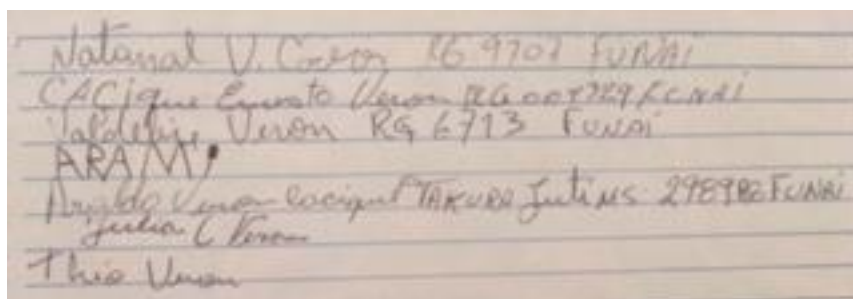 Natanal V. RG 9707 FUNAI
CACique Ernesto Veron RG FUNAI
Valdelice Veron RG 6713 FUNAI
ARAMI
Araldo Veron cacique TAKUARA Juti MS FUNAI
Julia C Veron
Thio Veron